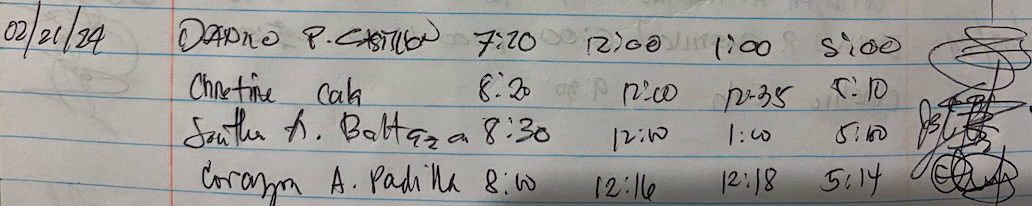 02/21/24 P. 7:20 12:00 1:00 5:00
Christine 8:20 12:00 12-35 5:10
A. Baltaza 8:30 12:00 1:00 5:00
Corazon A. Padilla 8:00 12:16 12:18 5:14